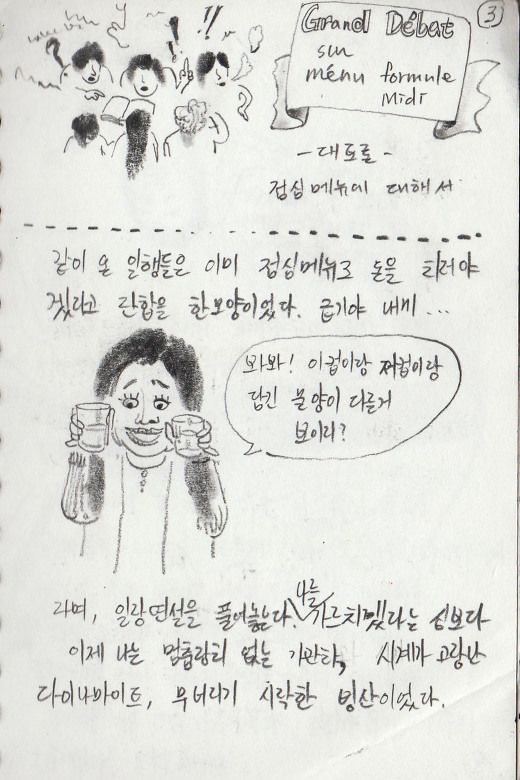 3
Grand Débat
sur
ménu formule
Midi
- 대토론 -
점심메뉴에 대해서
같이 온 일행들은 이미 점심메뉴로 돈을 치러야
겠다고 단합을 한모양이었다. 급기야 내게 ...
봐봐! 이컵이랑 저컵이랑
담긴 물양이 다른게
보이니?
라며, 일장연설을 풀어놓는다. 나를 가르치겠다는 심보다
이제 나는 멈출람이 없는 기관차, 시계가 고장난
다이나마이트, 무너지기 시작한 빙산이었다.